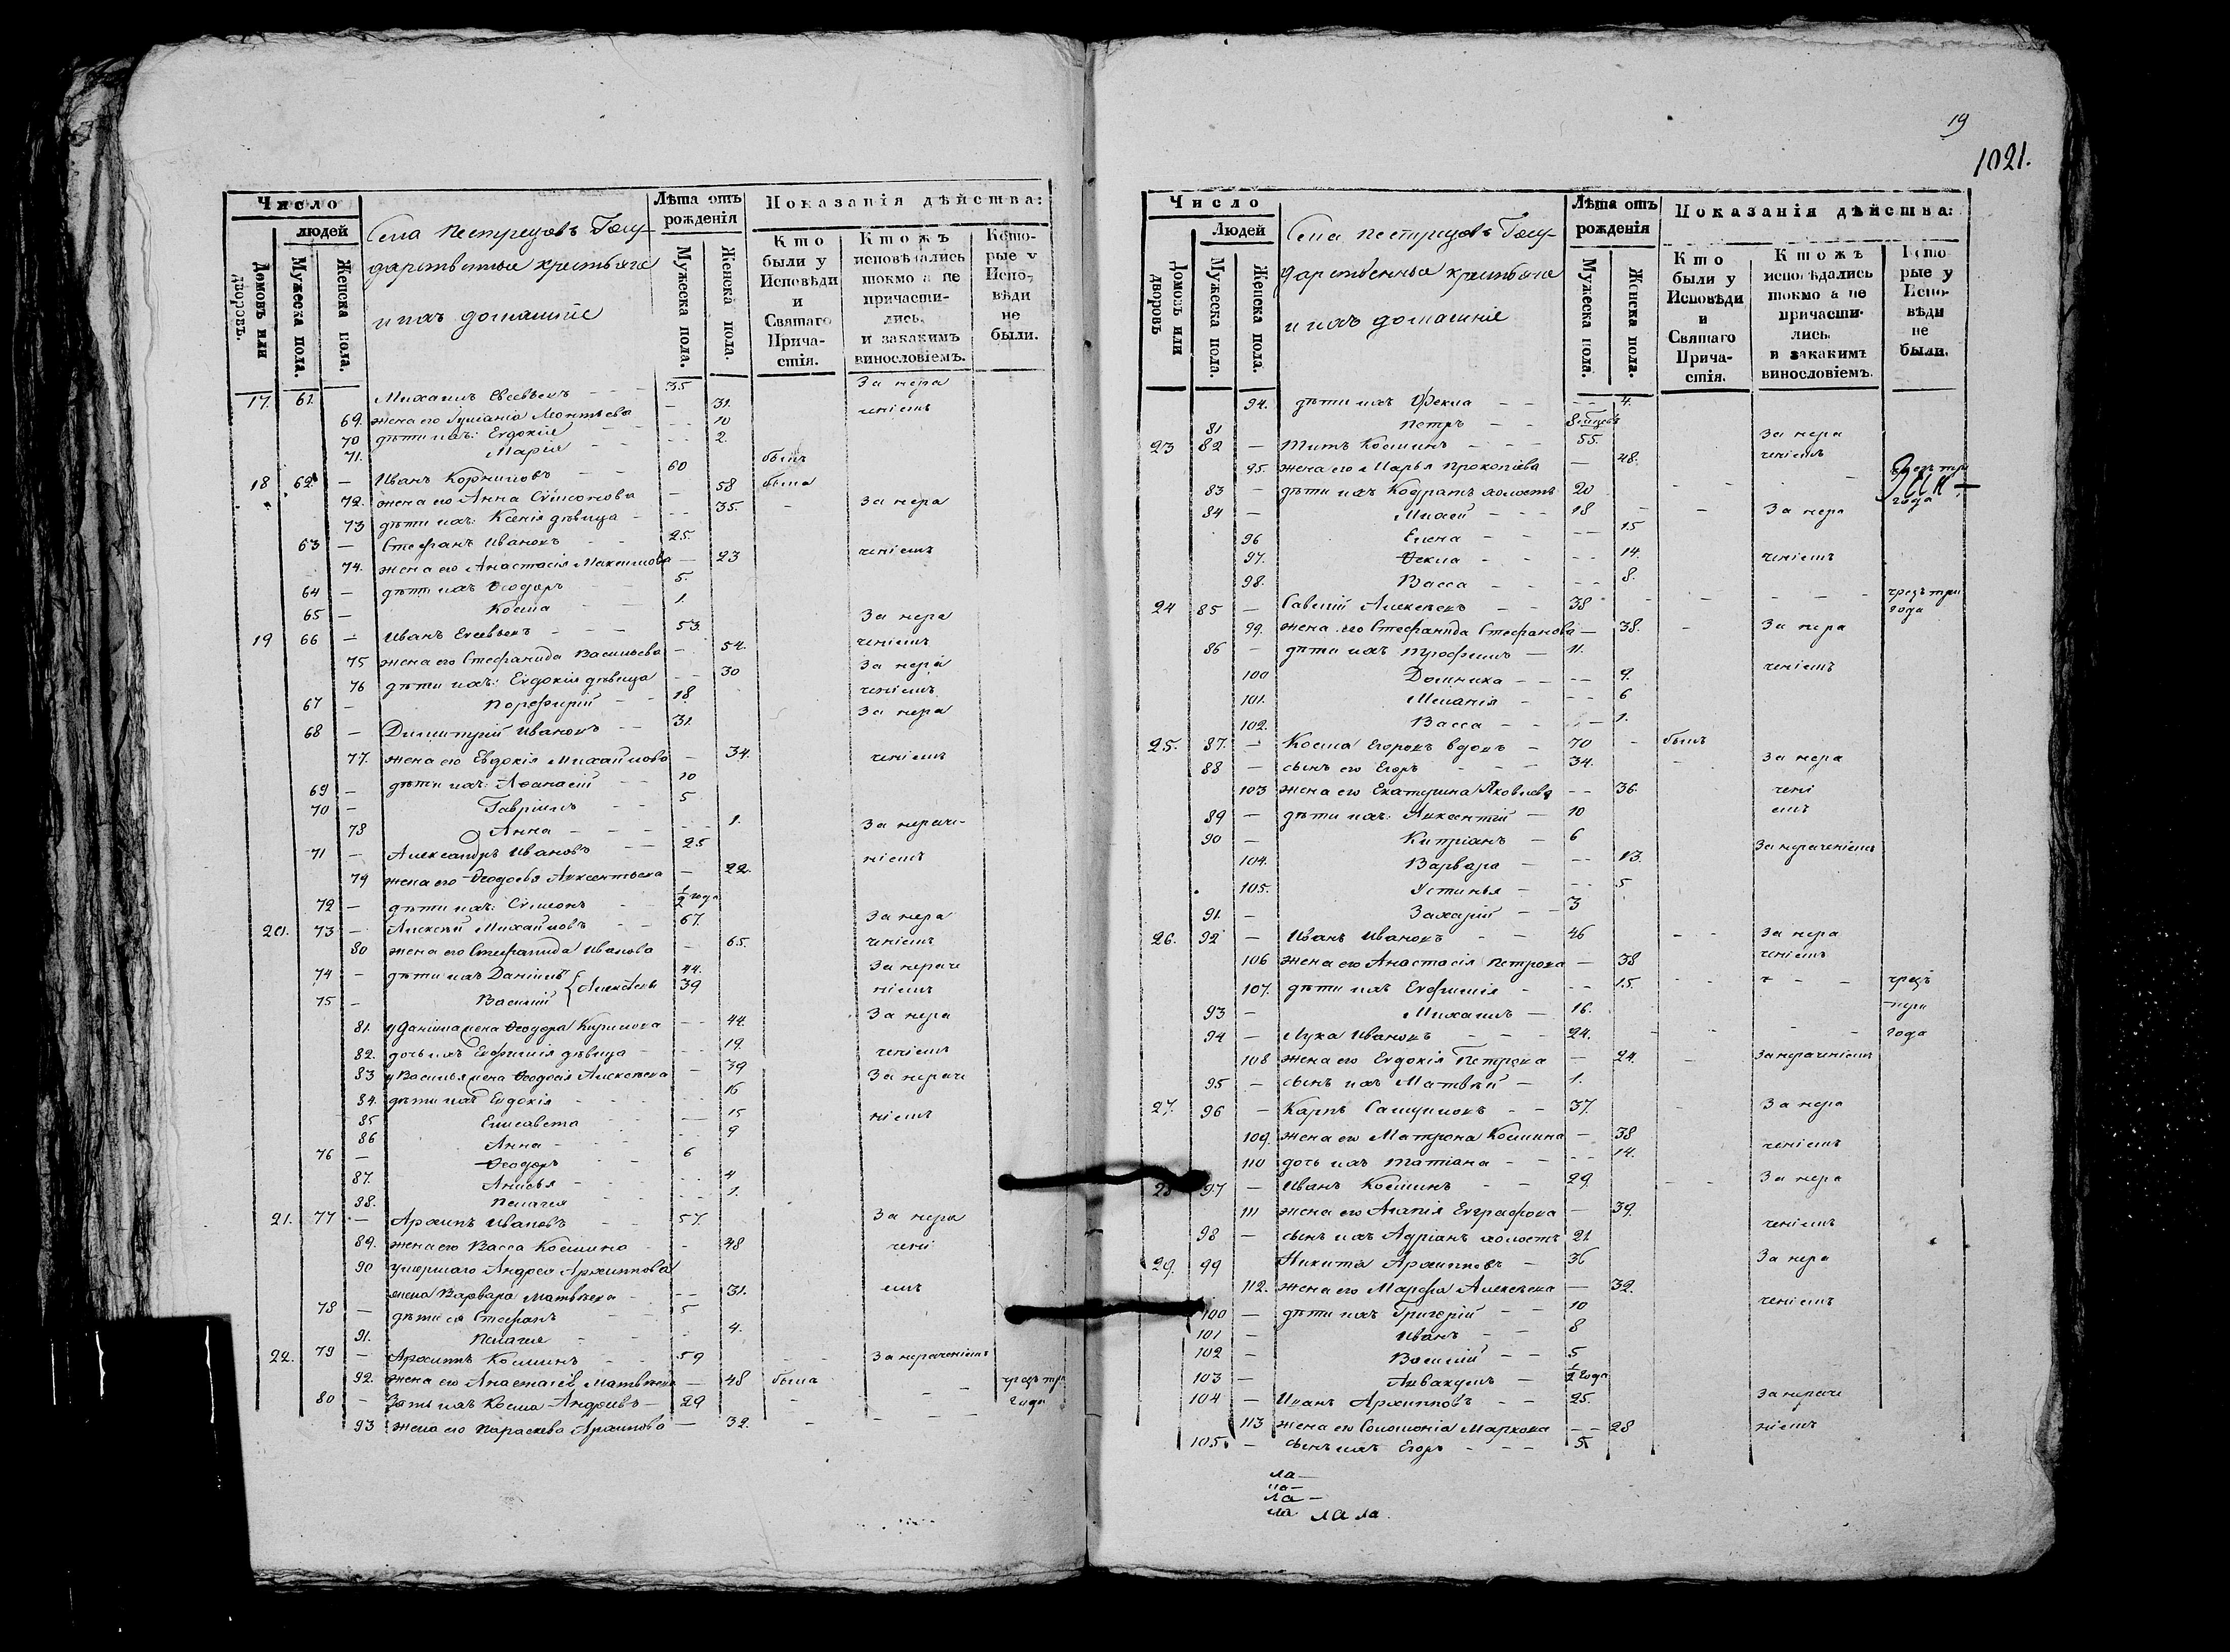 Число
людей
Домовъ или дворовъ.
Мужеска пола.
Женска пола.
Села Пестрецовъ Госу-
дарственные крестьяне
и ихъ домашніе
Лѣта отъ рожденія
Мужеска пола.
Женска пола.
Показанія дѣйства:
Кто были у Исповѣди и Святаго Прича-стія.
Ктожъ исповѣдались токмо а не причасти-лись. и закакимъ винословіемъ.
Кото-рые у Испо-вѣди не были.
17. 61. Михаилъ Евсѣевъ 35 За нера
69. жена его Іуліанія Леонтьева 31. ченіемъ
70 дѣти ихъ: Евдокія 10
71. Марія 2.
18 62. Иванъ Корниловъ 60 былъ
72. жена его Анна Симонова 58 была
73 дѣти ихъ: Ксенія дѣвица 35. За нера
63 Стефанъ Ивановъ 25.
74. жена его Анастасія Максимова 23 ченіемъ
64 дѣти ихъ Ѳеодоръ 5.
65 Косма 1.
19 66 Иванъ Евсѣевъ 53. За нера
75 жена его Стефанида Васильева 54. ченіемъ
76 дѣти ихъ: Евдокія дѣвица 30 За нера
67 Порфирій 18 ченіемъ
68 Димитрій Ивановъ 31. За нера
77. жена его Евдокія Михайлова 34. ченіемъ
69 дѣти ихъ: Аѳанасій 10
70 Гавріилъ 5
78 Анна 1.
71 Александръ Ивановъ 25 За нераче-
79 жена его Ѳеодосья Авксентьева 22. ніемъ
72 дѣти ихъ: Симеонъ 1/2 года
20. 73 Алексѣй Михайловъ 67. За нера
80 жена его Стефанида Иванова 65. ченіемъ
74 дѣти ихъ Даніилъ 44. За нераче
75 Василій Алексѣевы 39 ніемъ
81. у Даніила жена Ѳеодора Кирилова 44. За нера
82. дочь ихъ Евфимія дѣвица 19. ченіемъ
83 у Василья жена Ѳеодосія Алексѣева 39 За нераче
84. дѣти ихъ Евдокія 16
85 Елисавета 15 ніемъ
86 Анна 9
76 Ѳеодоръ 6
87. Анисья 4
88. Пелагея 1.
21. 77 Архипъ Ивановъ 57. За нера
89. жена его Васса Космина 48 чені
90 умершаго Андрея Архиппова
жена Варвара Матвѣева 31. емъ
78 дѣти ея Стефанъ 5
91. Пелагея 4.
22. 79 Архиппъ Косминъ 59 За нераченіемъ
92. жена его Анастасія Матвѣева 48 была чрезъ три
80 Зять ихъ Косма Андреевъ 29 года
93 жена его Параскева Архипова 32.
19
1021.
Число
Людей
Домовъ или дворовъ
Мужеска пола.
Женска пола.
Села Пестрецовъ Госу-
дарственные крестьяне
и ихъ домашніе
Лѣта отъ рожденія
Мужеска пола.
Женска пола.
Показанія дѣйства:
Кто были у Исповѣди и Святаго Прича-стія.
Ктожъ исповѣдались токмо а не причасти-лись. и закакимъ винословіемъ.
Кото рые у Испо-вѣди не были.
94. дѣти ихъ Ѳекла 4.
81 Петръ 8
23 82 Титъ Косминъ 55. За нера
95. жена его Марья Прокопіева 48. ченіемъ
83 дѣти ихъ Кодратъ холостъ 20 чрезъ три
84 Моисей 18 За нера года
96 Елена 15
97. Ѳекла 14. ченіемъ
98. Васса 8.
24 85 Савелій Алексѣевъ 38 чрезъ три
99. жена его Стефанида Стефанова 38. За нера года
86 дѣти ихъ Трофимъ 11.
100 Домника 9. ченіемъ
101. Меланія 6
102. Васса 1.
25. 87. Косма Егоровъ вдовъ 70 былъ
88 сынъ его Егоръ 34. За нера
103 жена его Екатерина Яковлева 36 чені
89 дѣти ихъ: Авксентій 10 емъ
90 Кипріанъ 6
104. Варвара 13. За нераченіемъ
105. Устинья 5
91. Захарій 3
26. 92 Иванъ Ивановъ 46 За нера
106 жена его Анастасія Петрова 38 ченіемъ
107. дѣти ихъ Евфимія 15. чрезъ
93 Михаилъ 16. три
94 Лука Ивановъ 24. года
108 жена его Евдокія Петрова 24. За нераченіемъ
95 сынъ ихъ Матвѣй 1.
27. 96 Карпъ Самуиловъ 37. За нера
109. жена его Матрона Космина 38 ченіемъ
110 дочь ихъ Татіана 14.
28 97 Иванъ Косминъ 29. За нера
111 жена его Агапія Евграфова 39.
98 сынъ ихъ Адріанъ холостъ 21. ченіемъ
29. 99 Никита Архипповъ 36 За нера
112. жена его Марфа Алексѣева 32.
100 дѣти ихъ Григорій 10 ченіемъ
101 Иванъ 8
102 Василій 5
103 Аввакумъ 1/2 года
104 Иванъ Архипповъ 25. За нераче
113 жена его Соломонія Маркова 28 ніемъ
105. сынъ ихъ Егоръ 5
ла
ла
ла ла ла